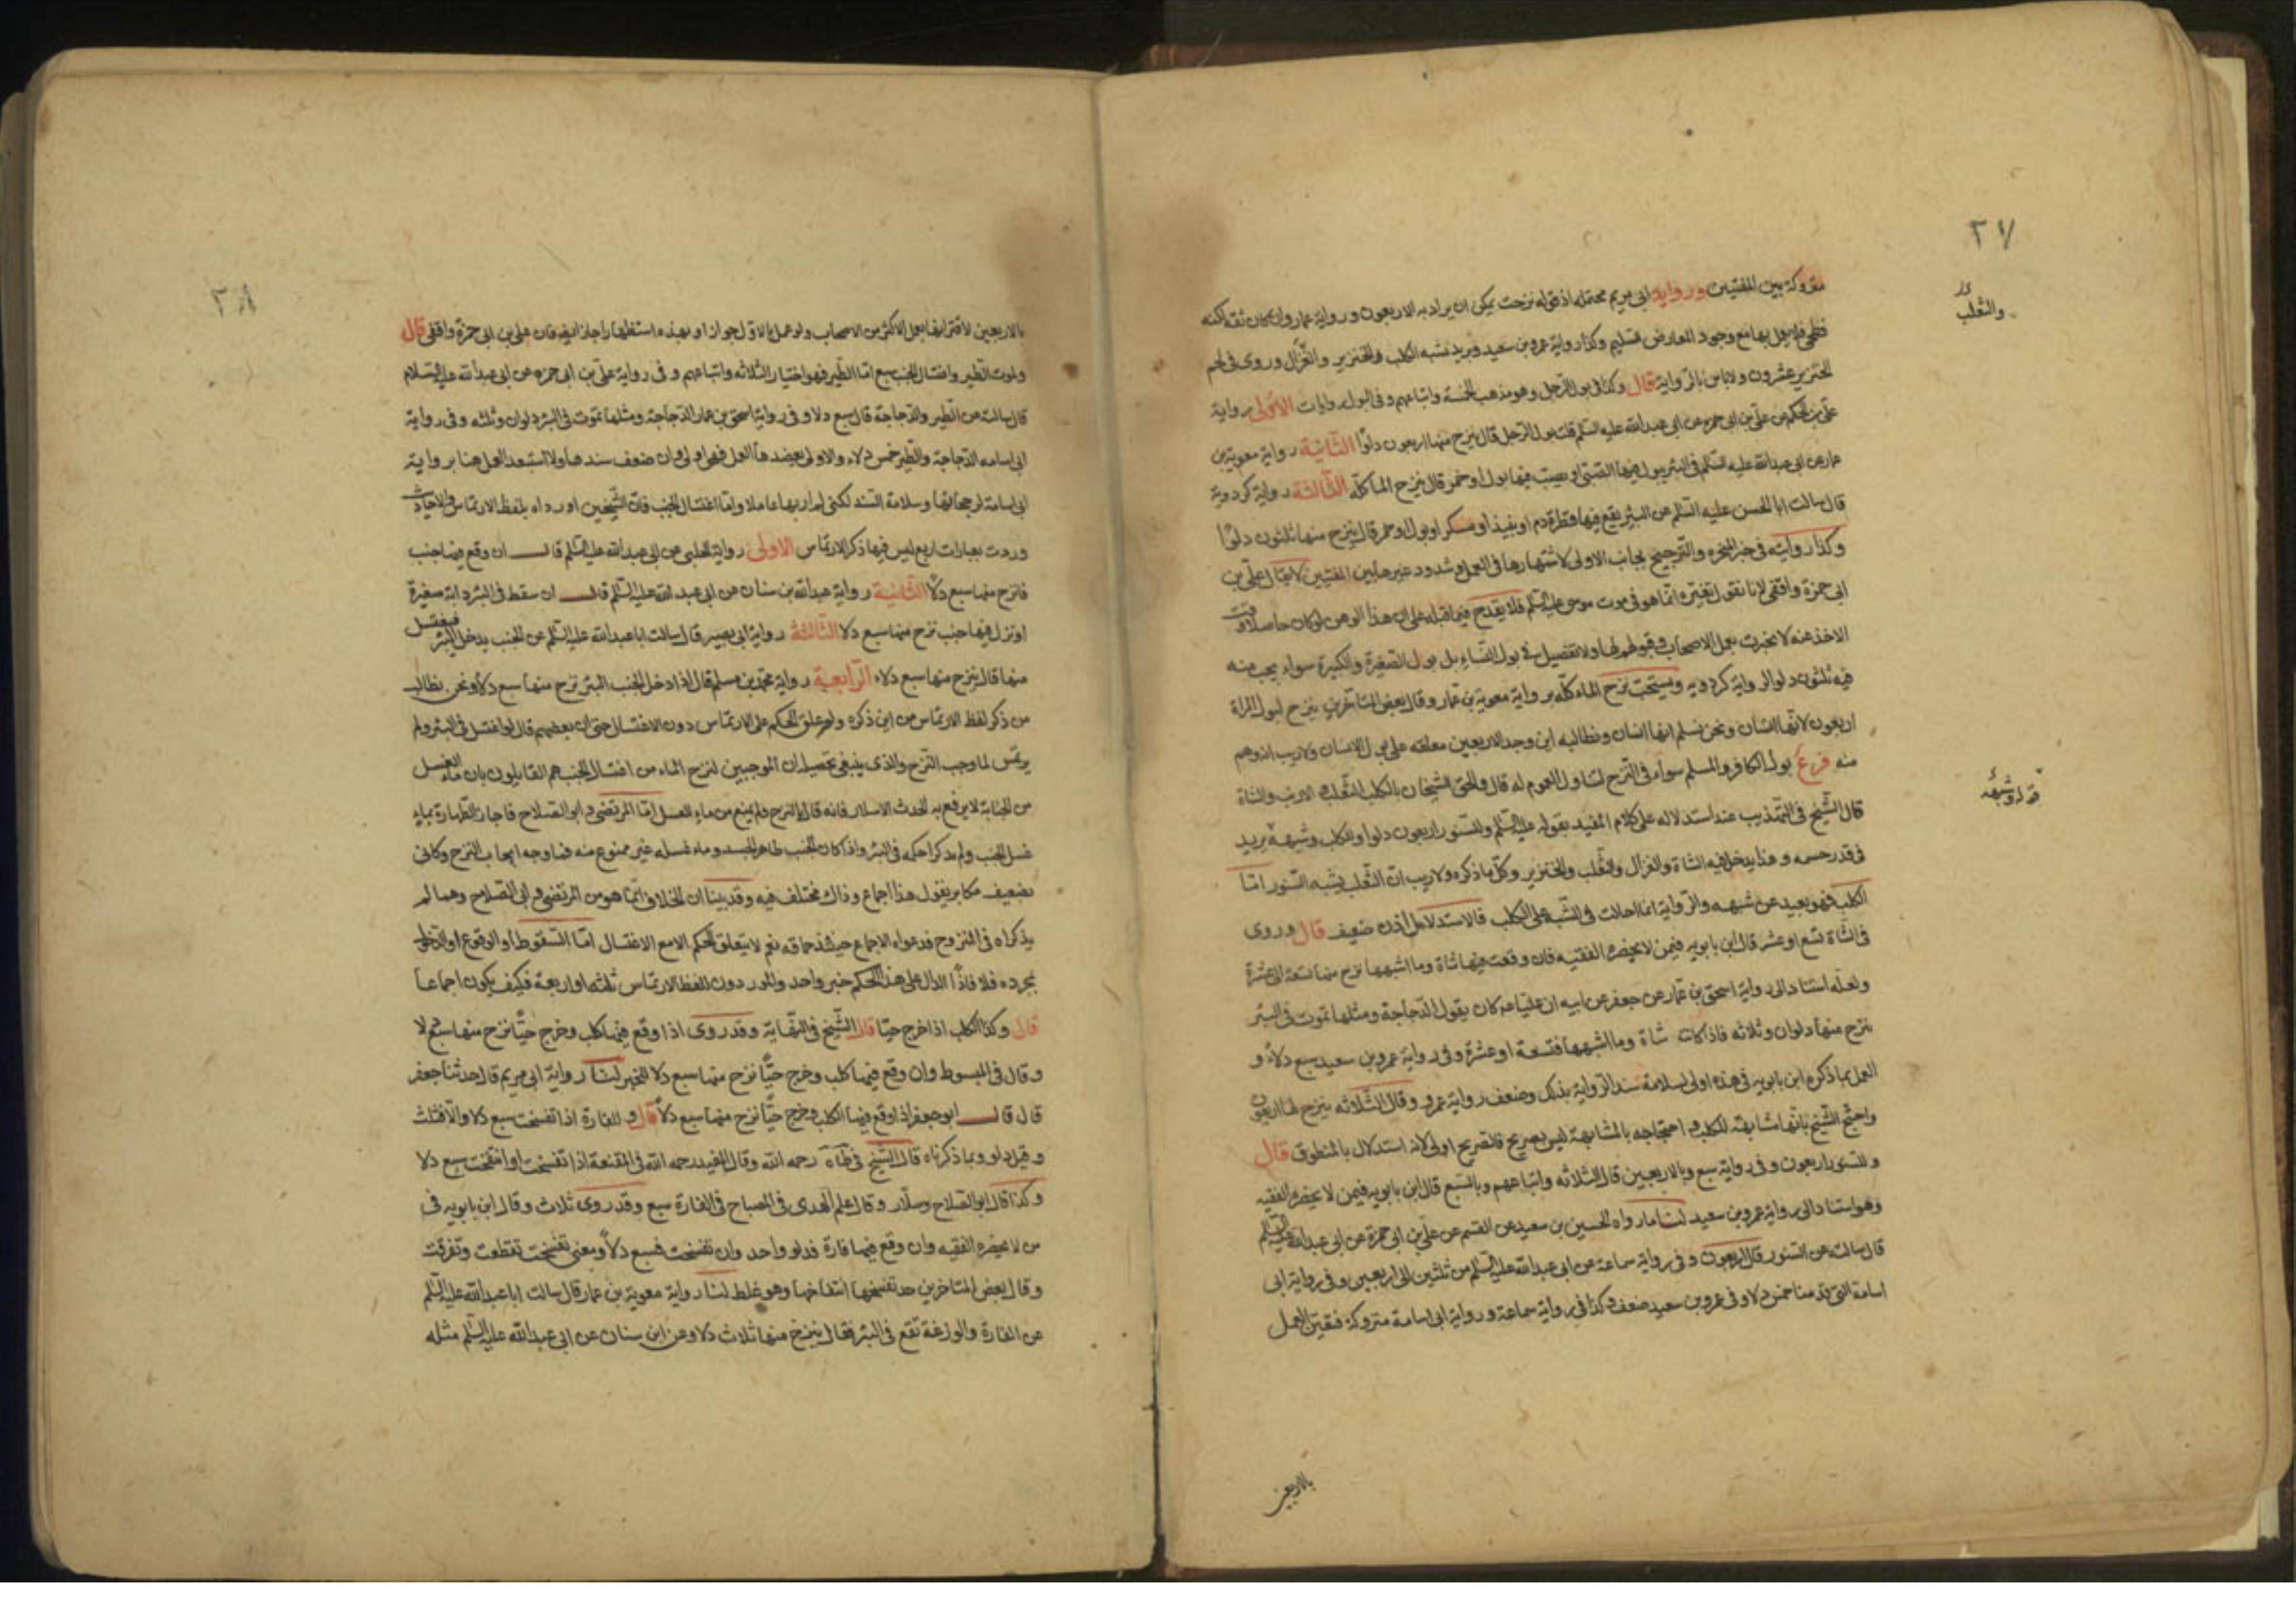 ٢٧
والثعلب
متروكة بين المفتين ورواية ابى مريم محتملة اذ قوله نزحت يمكن ان يراد به الاربعون ورواية عمار وان كان ثقة لكنه
فطحى فلا يعمل بها مع وجود المعارض السليم وكذا رواية عمرو بن سعيد ويريد بشبه الكلب والخنزير والغزال وروى فى لحم
الخنزير عشرون ولا باس بالرواية قال وكذا فى بول الرجل وهو مذهب الخمسة واتباعهم وفى البول روايات الاولى رواية
على بن الحكم عن على بن ابى حمزه عن ابى عبدالله عليه السلم قلت بول الرجل قال ينزح منها اربعون دلوًا الثانية رواية معوية بن
عمار عن ابى عبدالله عليه السلم فى البئر يبول فيها الصبى او يصب فيها بول او خمر قال ينزح الماء كله الثالثة رواية كردويه
قال سالت ابا الحسن عليه السلم عن البئر يقع فيها قطرة دم او نبيذ او مسكر او بول او خمر قال ينزح منها ثلثون دلوًا
وكذا روايته فى خبر المخرة والترجيح بجانب الاولى لاشتهارها فى العمل وشذوذ غيرها بين المفتين لا يقال على بن
ابى حمزة واقفى لانا نقول تغيره انما هو فى موت موسى عليه السلم فلا يقدح فيما قبله على ان هذا الوهن لو كان حاصلا وقت
الاخذ عنه لانجبرت بعمل الاصحاب وقبولهم لها ولا تفصيل فى بول النساء بل بول الصغيرة والكبيرة سواء يجب منه
فيه ثلثون دلوا لرواية كردويه ويستحب نزح الماء كله برواية معوية بن عمار وقال بعض المتاخرين ينزح لبول المراة
اربعون لانها انسان ونحن نسلم انها انسان ونطالبه اين وجد الاربعين معلقه على بول الانسان ولا ريب انه وهم
منه فرع بول الكافر والمسلم سواء فى النزح لتناول العموم له قال والحق الشيخان بالكلب الثعلب والارنب والشاة
قوله وشبهه
قال الشيخ فى التهذيب عند استدلاله على كلام المفيد بقوله عليه السلم وللسنور اربعون دلوا وللكلب وشبهه يريد
فى قدر جسمه وهذا يدخل فيه الشاة والغزال والثعلب والخنزير وكل ما ذكره ولا ريب ان الثعلب يشبه السنور اما
الكلب فهو بعيد عن شبهه والرواية انما احالت فى الشبه على الكلب فالاستدلال اذن ضعيف قال وروى
فى الشاة تسع او عشر قال ابن بابويه فيمن لا يحضره الفقيه فان وقعت فيها شاة وما اشبهها نزح منها تسعة الى عشرة
ولعله استنادا الى رواية اسحق بن عمار عن جعفر عن ابيه ان عليا عم كان يقول الدجاجة ومثلها تموت فى البئر
ينزح منها دلوان وثلاثه فاذا كانت شاة وما اشبهها فتسعة او عشرة وفى رواية عمرو بن سعيد سبع دلاء و
العمل بما ذكره ابن بابويه فى هذه اولى لسلامة سند الرواية بذلك وضعف رواية عمرو وقال الثلاثه ينزح لها اربعون
واحتج الشيخ بانها مشابهة للكلب واحتجاجه بالمشابهة ليس بصريح فالصريح اولى لانه استدلال بالمنطوق قال
وللسنور اربعون وفى رواية سبع وبالاربعين قال الثلاثه واتباعهم وبالسبع قال ابن بابويه فيمن لا يحضره الفقيه
وهو استنادا الى رواية عمرو بن سعيد لنا ما رواه الحسين بن سعيد عن القسم عن على بن ابى حمزة عن ابى عبدالله عليه السلم
قال سالته عن السنور قال اربعون وفى رواية سماعة عن ابى عبدالله عليه السلم من ثلثين الى اربعين وفى رواية ابى
اسامة التى قدمنا خمس دلاء وفى عمرو بن سعيد ضعف وكذا فى رواية سماعة ورواية ابى اسامة متروكة فتعين العمل
بالاربعين
٢٨
بالاربعين لاقترانها بعمل الاكثر من الاصحاب ولو عمل بالاول جوازا وبهذه استظهارا جاز ايضا فان على بن ابى حمزة واقفى قال
ولموت الطير واغتسال الجنب سبع اما الطير فهو اختيار الثلاثه واتباعهم وفى رواية على بن ابى حمزه عن ابى عبدالله عليه السلام
قال سالته عن الطير والدجاجة قال سبع دلاء وفى رواية اسحق بن عمار الدجاجة ومثلها تموت فى البئر دلوان وثلثه وفى رواية
ابى اسامه الدجاجة والطير خمس دلاء والاولى يعضدها العمل فهى اولى وان ضعف سندها ولا استبعد العمل هنا برواية
ابى اسامة لرجحانها وسلامة السند لكنى لم ار بها عاملا واما اغتسال الجنب فان الشيخين اورداه بلفظ الارتماس والاحاديث
وردت بعبارات اربع ليس فيها ذكر الارتماس الاولى رواية الحلبى عن ابى عبدالله عليه السلم قال ان وقع فيها جنب
فانزح منها سبع دلاء الثانية رواية عبدالله بن سنان عن ابى عبدالله عليه السلم قال ان سقط فى البئر دابة صغيرة
او نزل فيها جنب نزح منها سبع دلا الثالثة رواية ابى بصير قال سالت ابا عبدالله عليه السلم عن الجنب يدخل البئر فيغتسل
منها قال ينزح منها سبع دلاء الرابعية رواية محمد بن مسلم قال اذا دخل الجنب البئر نزح منها سبع دلاء ونحن نطالب
من ذكر لفظ الارتماس من اين ذكره ولم علق الحكم على الارتماس دون الاغتسال حتى ان بعضهم قال لو اغتسل فى البئر ولم
يرتمس لما وجب النزح والذى ينبغى تحصيله ان الموجبين لنزح الماء من اغتسال الجنب هم القايلون بان ماء الغسل
من الجنابة لا يرفع به الحدث الا سلار فانه قال بالنزح ولم يمنع من ماء الغسل اما المرتضى وابو الصلاح فاجازا الطهارة بماء
غسل الجنب ولم يذكرا حكمه فى البئر واذا كان الجنب طاهر الجسد وماء غسله غير ممنوع منه فما وجه ايجاب النزح وكانى
بضعيف مكابر يقول هذا اجماع وذاك مختلف فيه وقد بينا ان الخلاف انما هو من المرتضى وابى الصلاح وهما لم
يذكراه فى المنزوح فدعواه الاجماع حينئذ حماقة نعم لا يتعلق الحكم الا مع الاغتسال اما السقوط او الوقوع او الدخول
بمجرده فلا فاذًا الدال على هذا الحكم خبر واحد والمورد دون للفظ الارتماس ثلثه او اربعة فكيف يكون اجماعا
قال وكذا الكلب اذا خرج حيّا قال الشيخ فى النهاية وقد روى اذا وقع فيها كلب وخرج حيًّا نزح منها سبع دلا
وقال فى المبسوط وان وقع فيها كلب وخرج حيًّا نزح منها سبع دلا للخبر لنا رواية ابى مريم قال حدثنا جعفر
قال قال ابو جعفر اذا وقع فيها الكلب وخرج حيًّا نزح منها سبع دلاء قال وللفارة اذا تفسخت سبع دلا والا فثلث
وقيل دلو وبما ذكرناه قال الشيخ فى رحمه الله وقال المفيد رحمه الله فى المقنعة اذا تفسخت او انتفخت سبع دلا
وكذا قال ابو الصلاح وسلار وقال علم الهدى فى المصباح فى الفارة سبع وقد روى ثلاث وقال ابن بابويه فى
من لا يحضره الفقيه وان وقع فيها فارة فدلو واحد وان تفسخت فسبع دلاء ومعنى تفسخت تقطعت وتفرقت
وقال بعض المتاخرين حد تفسخها انتفاخها وهو غلط لنا رواية معوية بن عمار قال سالت ابا عبدالله عليه السلم
عن الفارة والوزغة تقع فى البئر فقال ينزح منها ثلاث دلا وعن ابن سنان عن ابى عبدالله عليه السلم مثله